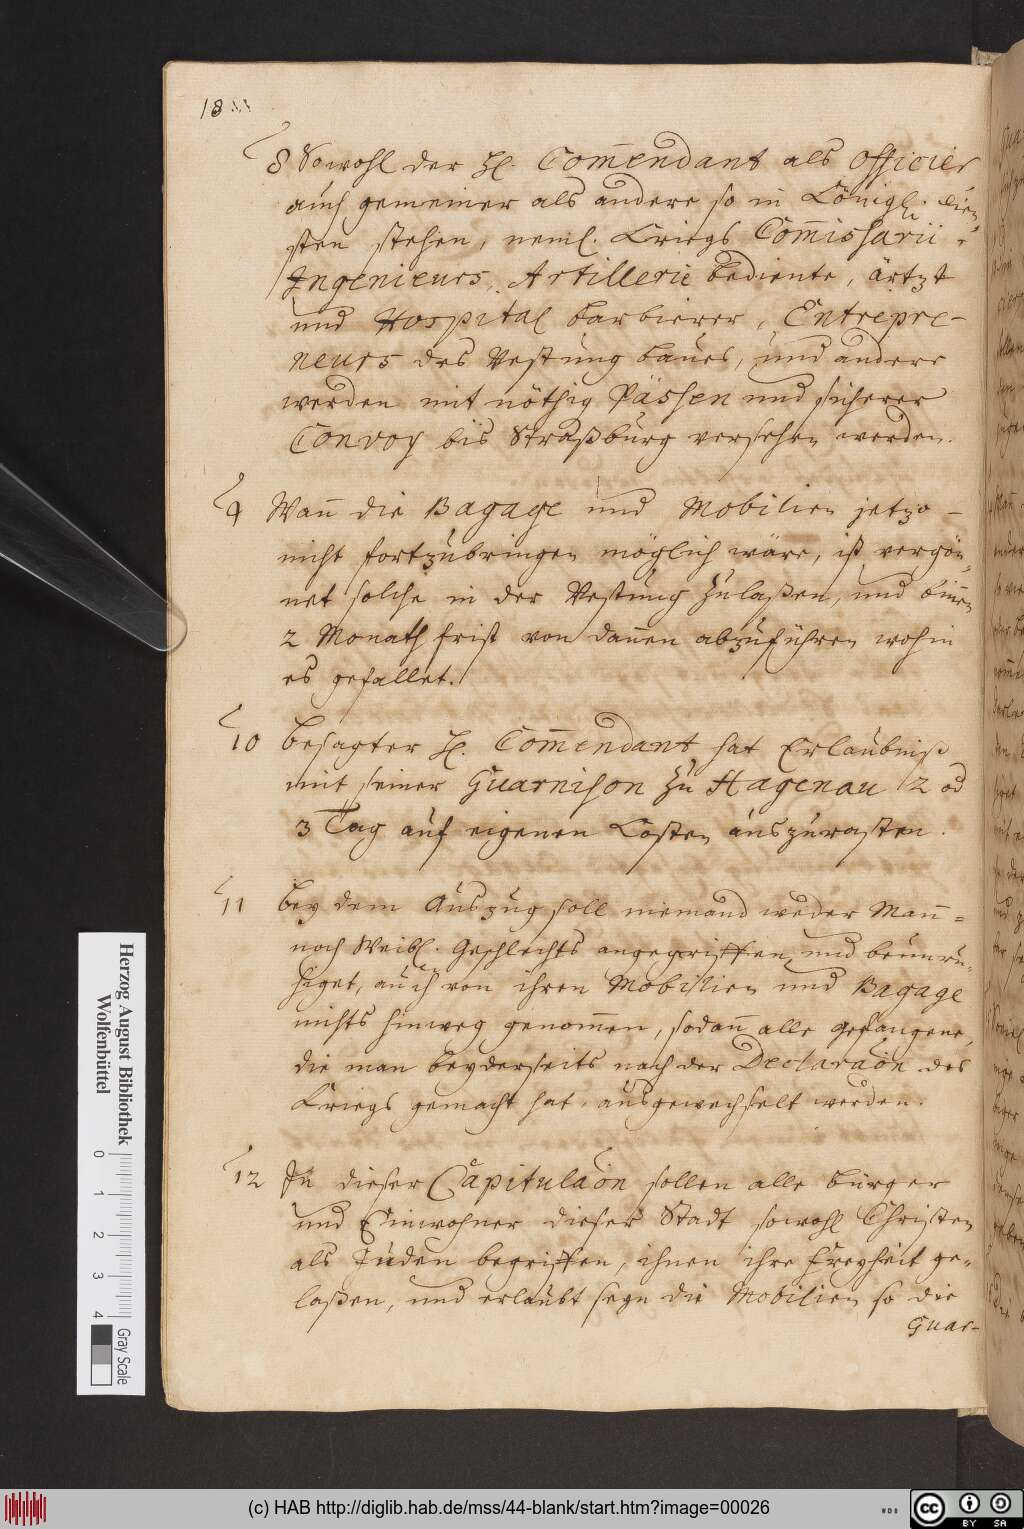 18
8 Sowohl der H. Com̄endant als Officier
auch gemeiner als andere so in Königl. dien„
sten stehen, neml. Kriegs Com̄issarii
Ingenieurs, Artillerie bediente, ärtzt
und Hospital barbierer, Entrepre-
neurs des Vestung baues, und andere
werden mit nöthig Pässen und sicherer
Convoy bis Straßburg versehen werden.
9 Wan̄ die Bagage und Mobilien jetzo
nicht fortzubringen möglich wäre, ist vergön„
net solche in der Vestung zulaßen, und bin̄en
2 Monath frist von dan̄en abzuführen wohin
es gefallet.
10 besagter H. Com̄endant hat Erlaubniß
mit seiner Guarnison zu Hagenau 2 od
3 Tag auf eigenen Kosten auszurasten.
11 bey dem Auszug soll niemand weder Man̄=
noch Weibl. Geschlechts angegriffen und beunru„
higet, auch von ihren Mobilien und Bagage
nichts hinweg genom̄en, sodan̄ alle gefangene,
die man beyderseits nach der Declaraōn des
Kriegs gemacht hat, ausgewechselt werden.
12 In dieser Capitulaōn sollen alle bürger
und Einwohner dieser Stadt sowohl Christen
als Juden begriffen, ihnen ihre Freyheit ge„
laßen, und erlaubt seyn die Mobilien so die
Guar-
Herzog August Bibliothek
Wolfenbüttel
0 1 2 3 4
Gray Scale
(c) HAB http://diglib.hab.de/mss/44-blank/start.htm?image=00026
WDB
cc
BY SA